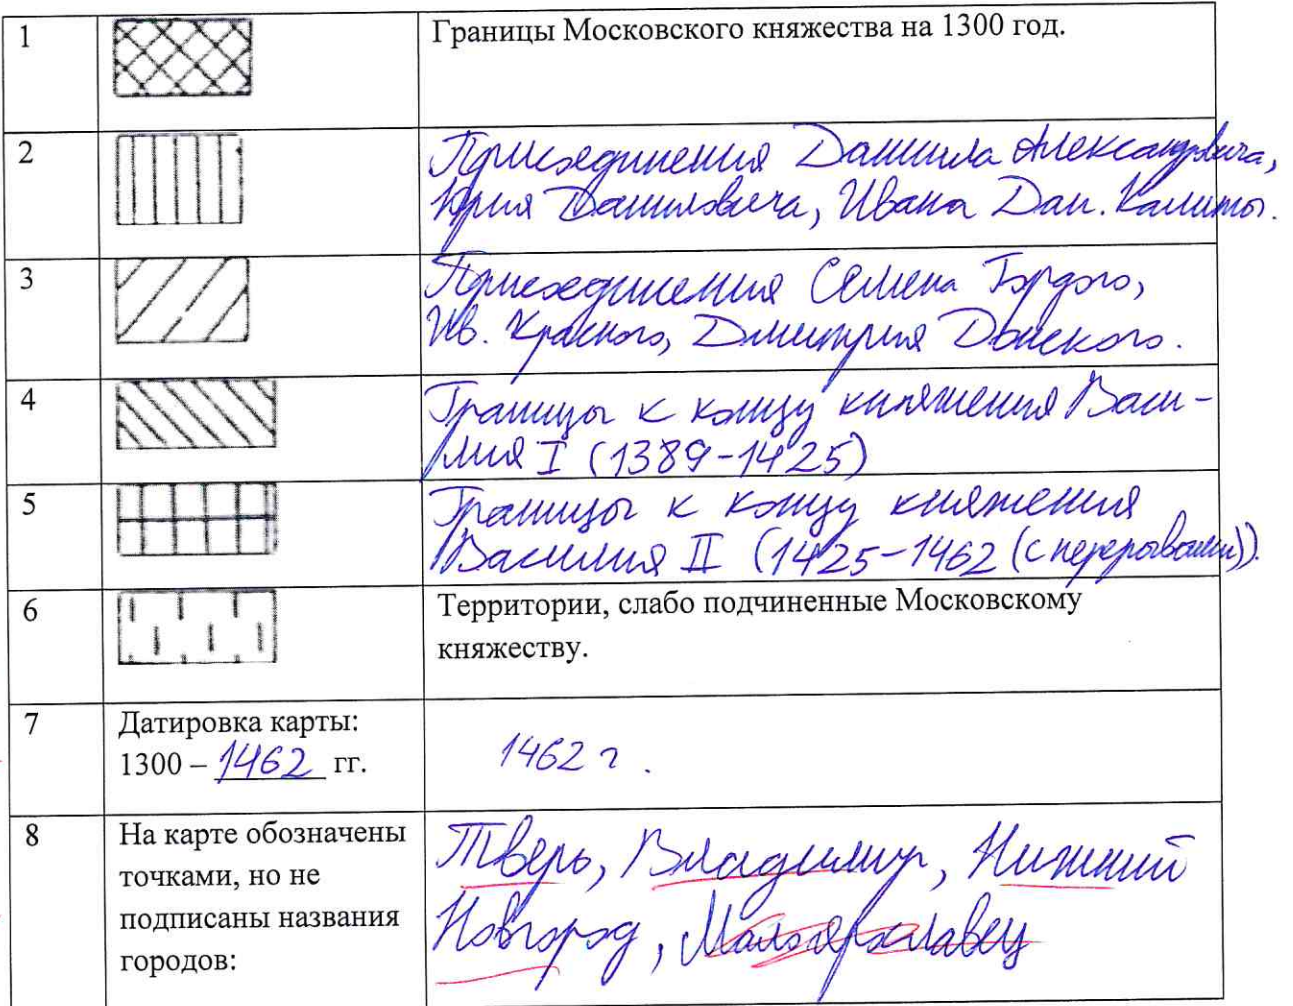 1 Границы Московского княжества на 1300 год.
2 Присоединения Даниила Александровича,
Юрия Даниловича, Ивана Дан. Калиты.
3 Присоединения Семена Гордого,
Ив. Красного, Дмитрия Донского.
4 Границы к концу княжения Васи-
лия I (1389-1425)
5 Границы к концу княжения
Василия II (1425-1462 (с перерывами)).
6 Территории, слабо подчиненные Московскому
княжеству.
7 Датировка карты:
1300 – 1462 гг.
1462 г.
8 На карте обозначены
точками, но не
подписаны названия
городов:
Тверь, Владимир, Нижний
Новгород, Малоярославец